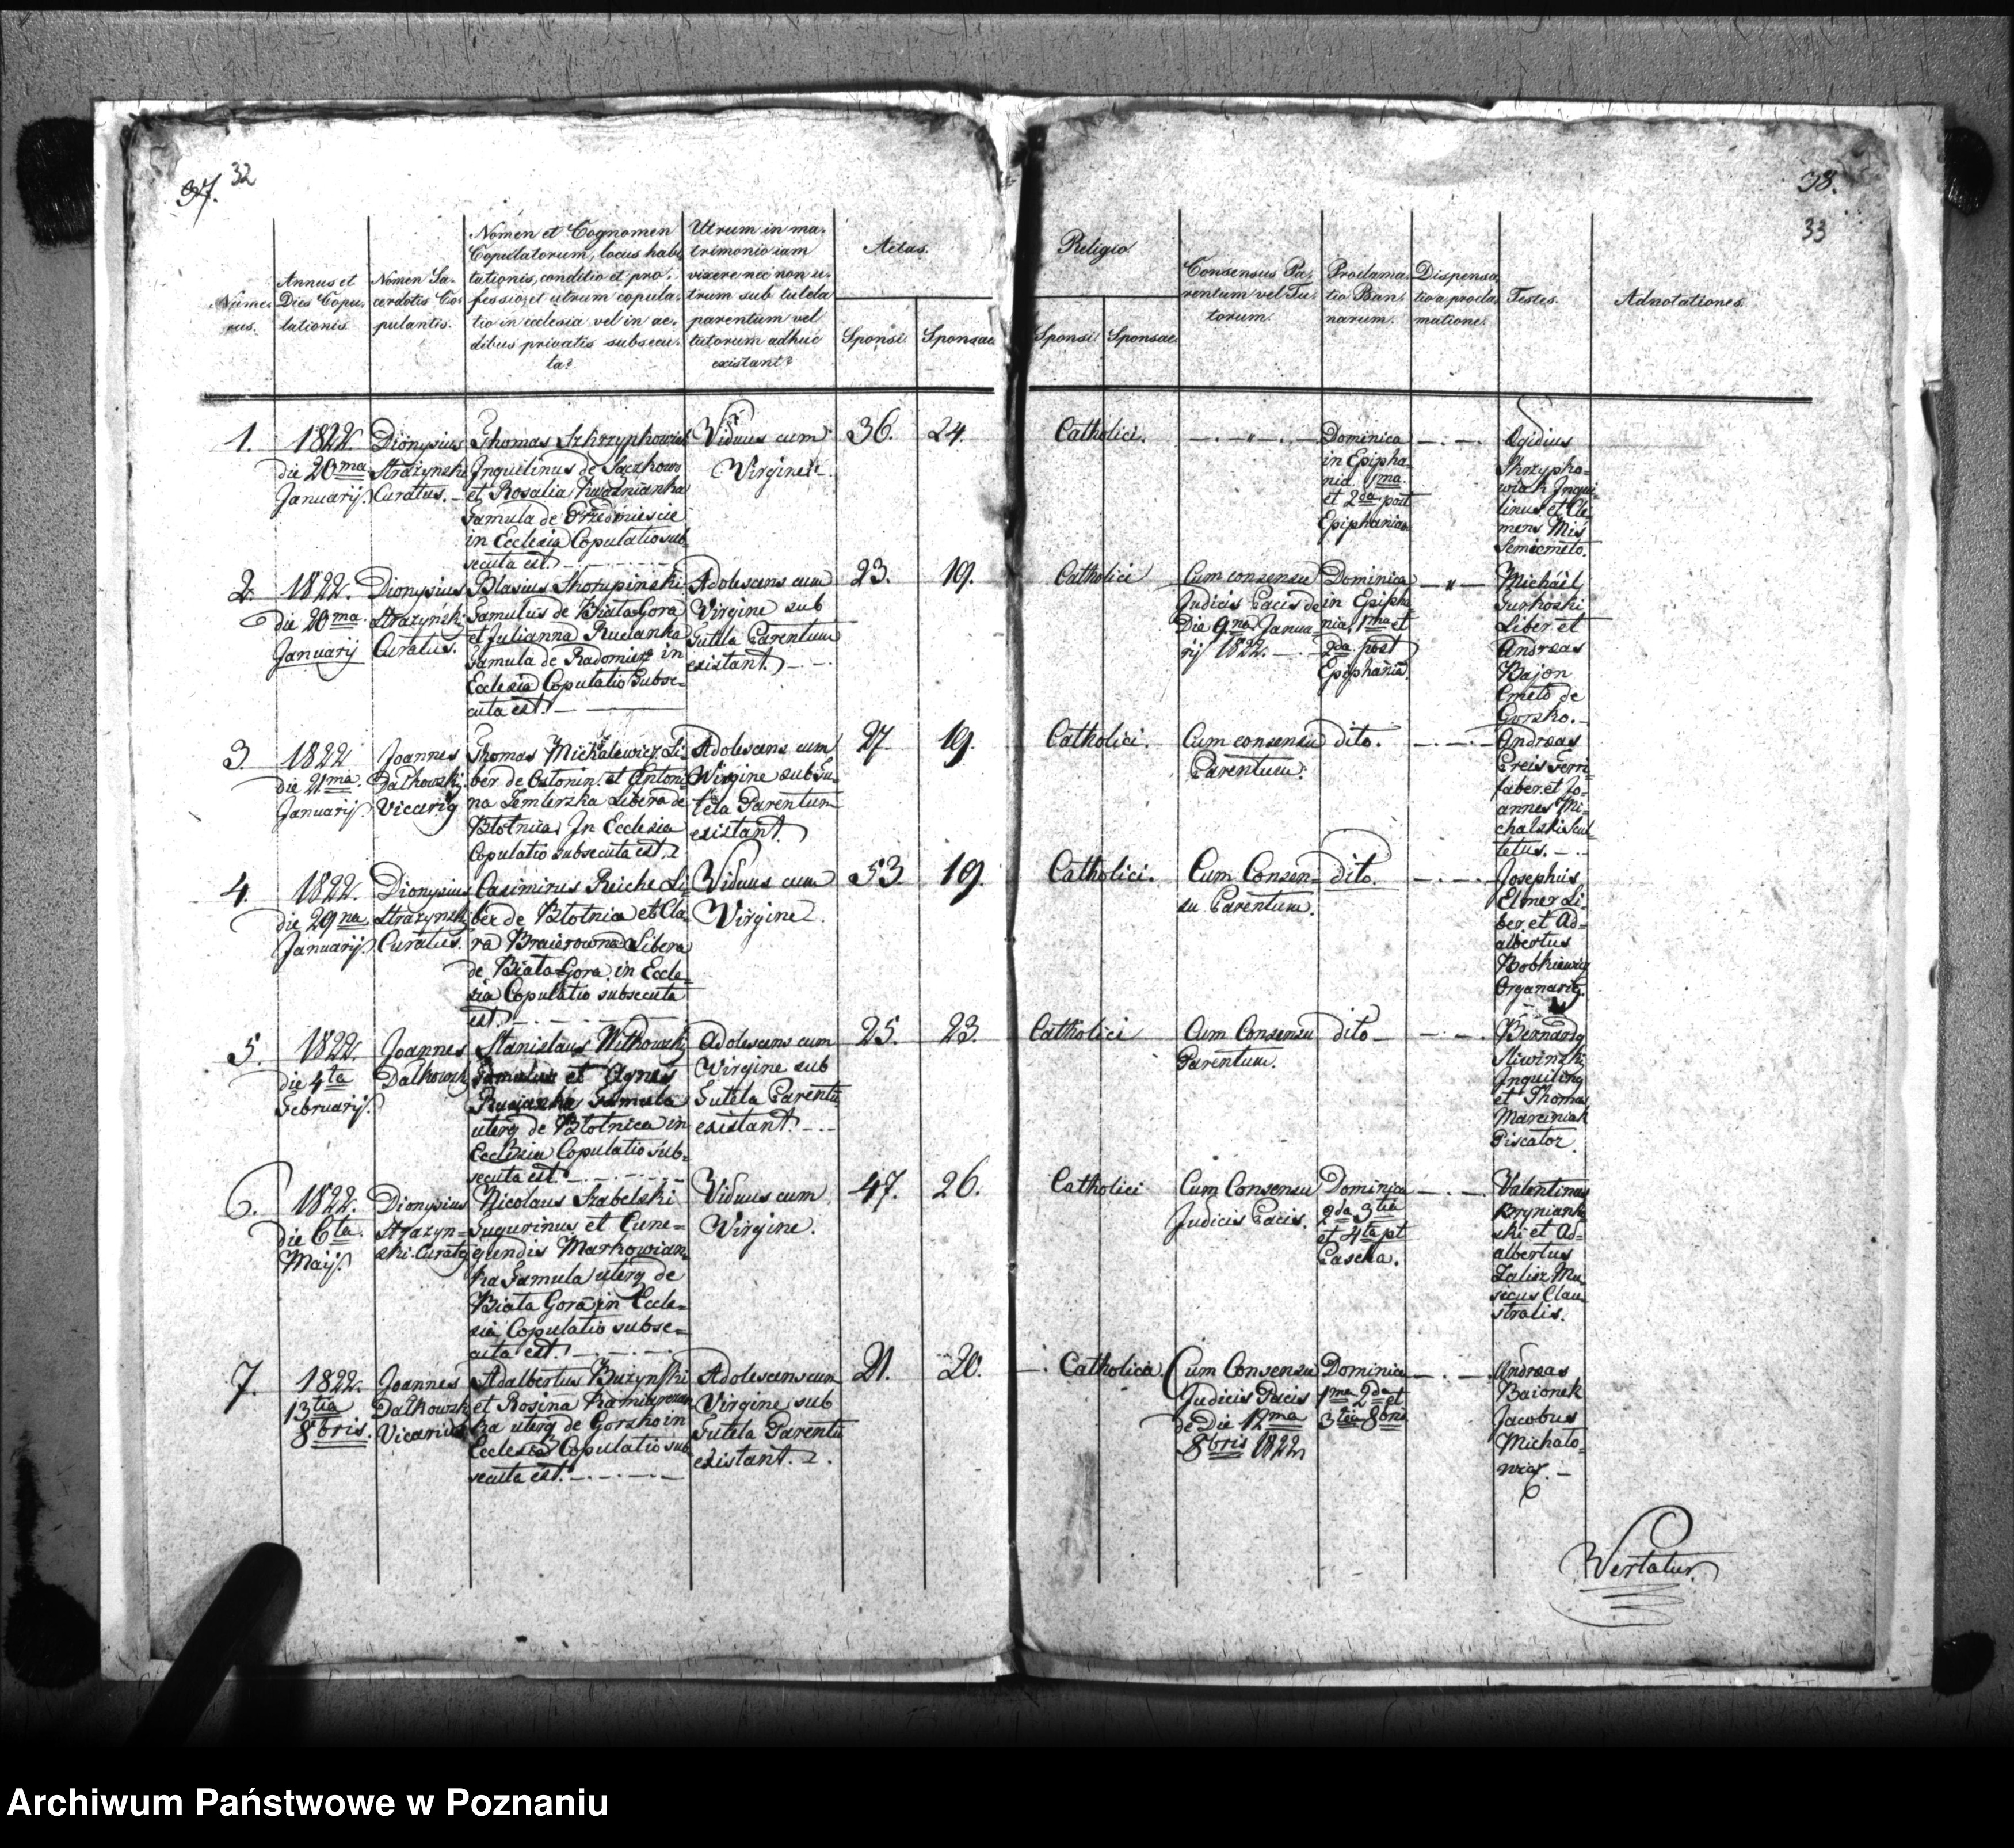 37. 32
38.
33
Numerus.
Annus et
Dies Copu-
lationis
Nomen Sa-
cerdotis Co-
pulantis.
Nomen et Cognomen
Copulatorum, locus habi
tationis, conditio et pro-
fessio, et utrum copula-
tio in ecclesia vel in ae-
dibus privatis subsecu-
ta?
Utrum in ma-
trimonio iam
vixere nec non u-
trum sub tutela
parentum vel
tutorum adhuc
existant?
Aetas.
Sponsi.
Sponsae
Religio
Sponsi
Sponsae
Consensus Pa-
rentum vel Tu-
torum.
Proclama-
tio Ban-
narum.
Dispensa
tio a procla
matione.
Testes.
Adnotationes.
1.
1822.
die 20ma
Januarij.
Dionysius
Strażynski
Curatus.
Thomas Skrzypkowiak
Inquilinus de
et Rosalia
Famula de
in Ecclesia Copulatio sub
secuta est.
Viduus cum
Virgine.
36.
24.
Catholici.
Dominica
in Epipha-
nia. 1ma
et 2da post
Epiphaniam
Egidius
Skrzypko-
wiak Inqui-
linus et Cle-
mens Mis
Semicmeto.
2.
1822.
die 20ma
Januarij
Dionysius
Strazyński
Curatus.
Blasius Skorupinski
Famulus de Biała Gora
et Julianna Rucianka
Famula de Radomierz in
Ecclesia Copulatio Subse-
cuta est.
Adolescens cum
Virgine sub
Tutela Parentum
existant.
23.
19.
Catholici
Cum consensu
Judicis Pacis de
Die 9na Janua-
rij 1822.
Dominica
in Epipha-
nia, 1ma et
2da post
Epiphania.
Michäel
Liber et
Andreas
Bajon
Cmeto de
Gorsko.
3.
1822
die 21ma
Januarij.
Joannes
Dalkowski
Vicarig
Thomas Michalewicz Li-
ber de et Antoni-
na Libera de
Błotnica, In Ecclesia
Copulatio subsecuta est.
Adolescens cum
Virgine sub Tu-
tela Parentum
existant.
27
19.
Catholici.
Cum consensu
Parentum.
dito.
Andreas
Preis ferri
faber et Jo-
annes Mi-
chalski Scul-
tetus.
4.
1822.
die 29na
Januarij
Dionysius
Strazynski
Curatus.
Casimirus Reiche Li-
ber de Błotnica et Cla-
ra Libera
de Biała Gora. in Eccle-
sia Copulatio subsecuta
est.
Viduus cum
Virgine.
53.
19.
Catholici.
Cum Consen-
su Parentum.
dito.
Josephus
Elsner Li-
ber et Ad-
albertus
Bobkiewicz
Organarig.
5.
1822.
die 4ta
Februarij.
Joannes
Dalkowski
Stanislaus Witkowski
Famulus et Agnes
Famula
uterq de Błotnica in
Ecclesia Copulatio sub-
secuta est.
Adolescens cum
Virgine sub
Tutela Parentu
existant.
25.
23.
Catholici
Cum Consensu
Parentum.
dito
Bernardg
Sliwinski
Inquiling
et Thomas
Marciniak
Piscator.
6.
1822.
die 6ta
Maij.
Dionysius
Strazyn-
ski Curatg
Nicolaus Kabelski
Tugurinus et Cune-
gundis Markowian-
ka Famula uterq de
Biała Gora in Eccle-
sia Copulatio subse-
cuta est.
Viduus cum
Virgine.
47.
26.
Catholici
Cum Consensu
Judicis Pacis.
Dominica
2da 3tia
et 4ta pt
Pascha.
Valentinus
Brynians-
ski et Ad-
albertus
Zalisz Mu-
sicus Clau-
stralis.
7.
1822.
13tia
8bris.
Joannes
Dalkowski
Vicarius
Adalbertus Buzynski
et Rosina
ka uterq de Gorsko in
Ecclesia Copulatio sub
secuta est.
Adolescens cum
Virgine sub
Tutela Parentu
existant.
21.
20.
Catholica.
Cum Consensu
Judicis Pacis
de Die 12ma
8bris 1822
Dominica
1ma 2da et
3tia 8bris
Andreas
Baionek
Jacobus
Michało-
wicz.
Vertatur.
Archiwum Państwowe w Poznaniu